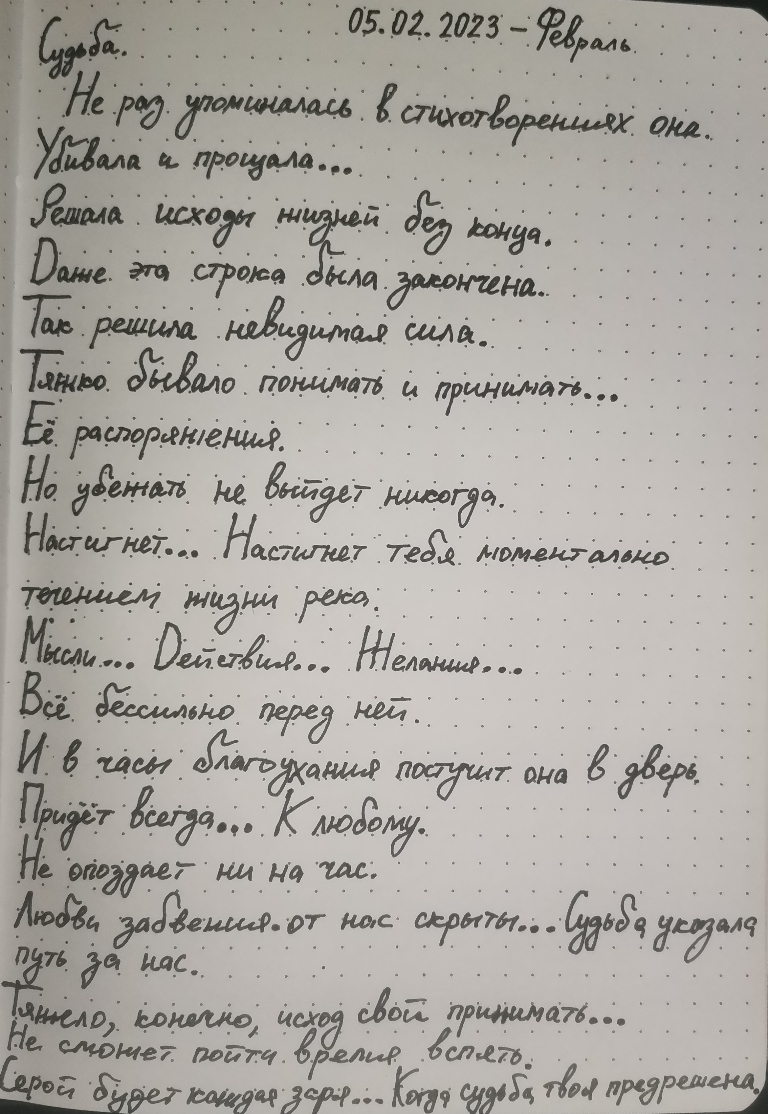 05.02.2023 – Февраль
Судьба.
Не раз упоминалась в стихотворениях она.
Убивала и прощала...
Решала исходы жизней без конца.
Даже эта строка была закончена.
Так решила невидимая сила.
Тяжко бывало понимать и принимать...
Её распоряжения.
Но убежать не выйдет никогда.
Настигнет... Настигнет тебя моментально
течением жизни река.
Мысли... Действия... Желания...
Всё бессильно перед ней.
И в часы благоухания постучит она в дверь.
Придёт всегда... К любому.
Не опоздает ни на час.
Любви забвения от нас скрыты... Судьба указала
путь за нас.
Тяжело, конечно, исход свой принимать...
Не сможет пойти время вспять.
Серой будет каждая заря... Когда судьба твоя предрешена.